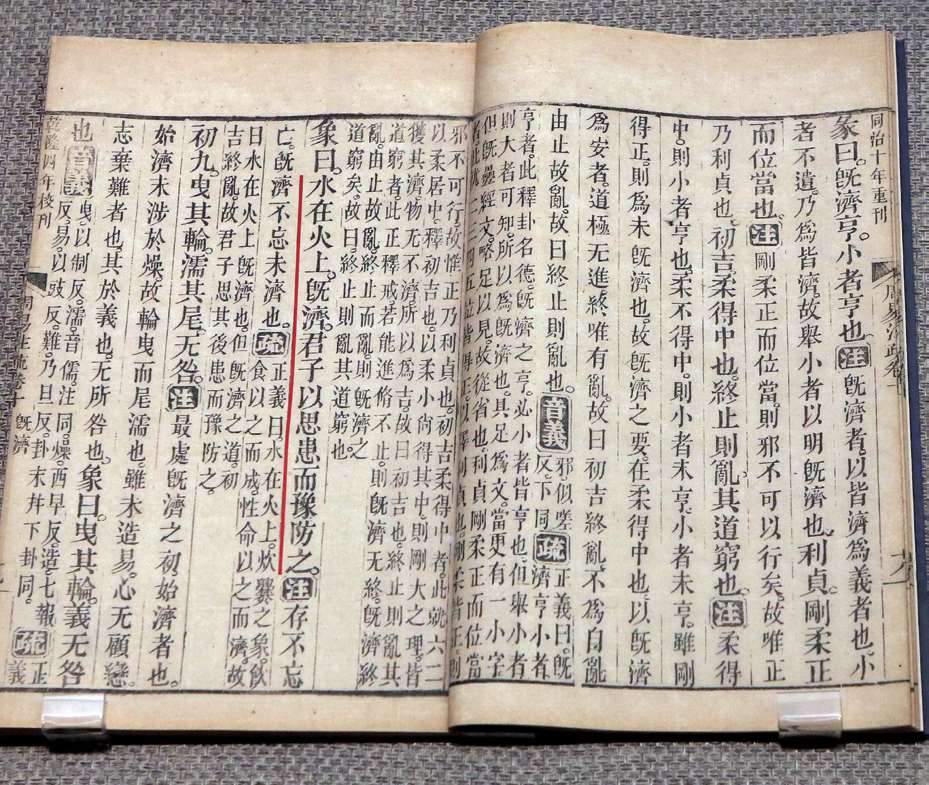 同治十年重刊
周易注疏卷十
彖曰。旣濟亨。小者亨也。注旣濟者。以皆濟爲義者也。小
者不遺。乃爲皆濟。故舉小者以明旣濟也。利貞。剛柔正
而位當也。注剛柔正而位當。則邪不可以行矣。故唯正
乃利貞也。初吉。柔得中也。終止則亂。其道窮也。注柔得
中。則小者亨也。柔不得中。則小者未亨。小者未亨。雖剛
得正。則爲未旣濟也。故旣濟之要。在柔得中也。以旣濟
爲安者。道極無進。終唯有亂。故曰初吉終亂。不爲自亂
由止故亂。故曰終止則亂也。音義邪。似嗟反。下同。疏正義曰。旣濟亨小者
亨者。此釋卦名德。旣濟之亨。必小者皆亨也。但舉小者
則大者可知。所以爲旣濟也。具足爲文。當更有一小字
但旣疊經文。略足以見。故從省也。利貞剛柔正而位當
者此就二三四五位皆得正以釋利貞也剛柔皆正則
邪不可行。故惟正乃利貞也。初吉柔得中者。此就六二
以柔居中。釋初吉也。以柔小尚得其中。則剛大之理皆
獲其濟。物无不濟。所以爲吉。故曰初吉也。終止則亂其
道窮者。此正釋戒。若能進脩不止。則旣濟无終。旣濟終
亂。由止故亂。終止而亂。則旣濟之
道窮矣。故曰終止則亂其道窮也。
象曰。水在火上。旣濟。君子以思患而豫防之。注存不忘
亡。旣濟不忘未濟也。疏正義曰。水在火上。炊爨之象。飲食以之而成。性命以之而濟。故
曰水在火上旣濟也。但旣濟之道。初
吉終亂。故君子思其後患而豫防之。
初九。曳其輪。濡其尾。无咎。注最處旣濟之初。始濟者也。
始濟未涉於燥。故輪曳而尾濡也。雖未造易。心无顧戀。
志棄難者也。其於義也。无所咎也。象曰。曳其輪。義无咎
也。音義曳。以制反。濡。音儒。注同。燥。西早反。造。七報反。易。以豉反。難。乃旦反。卦末幷下卦同。疏正義
乾隆四年校刊
周易注疏卷十 旣濟